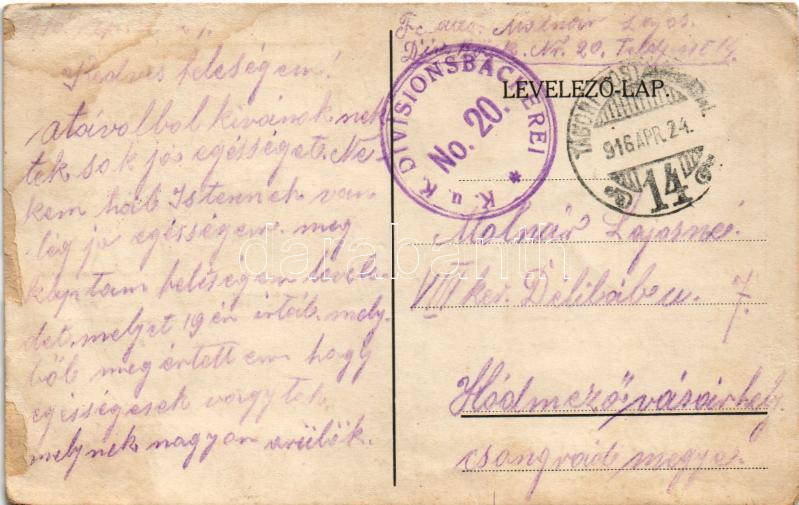 Kedves feleségem!
a távolbol kivánok nek
tek sok jó egésséget. Ne
kem hál Istennek van
lég jo egésségem. meg
kaptam feleségem levele
det. melyet 19 én irtál. mely
ből meg értettem hogy
egésségesek vagytok
melynek nagyon örülök.
Molnár Lajos.
Nr. 20. Feldpost 14.
LEVELEZŐ-LAP.
K. u. K. DIVISIONSBÄCKEREI
No. 20.
TÁBORI POSTA
916 APR. 24.
14
Molnár Lajosné
VIII ker. Délibáb u. 7.
Hódmező vásárhely
csongrád megye.
darabanth